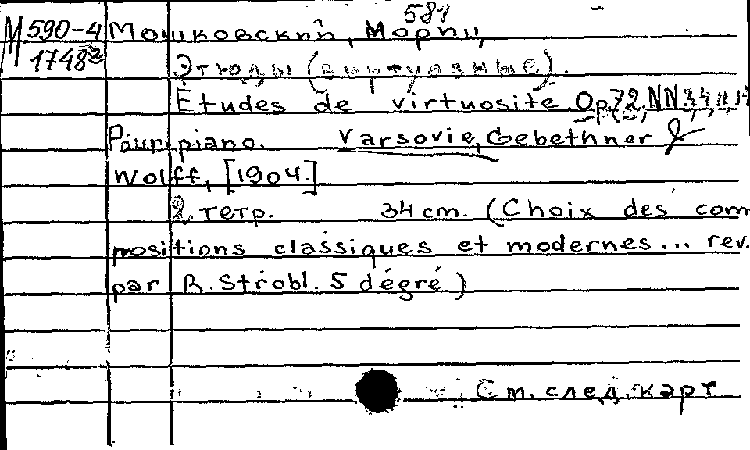 584
М 590-4 Мошковский, Мориц
1748
Этюды (виртуозные).
Etudes de virtuosite. Op. 72, NN 3,4,
Pour piano. Varsovie, Gebethner &
Wolff, [1904.]
2 тетр. 34 cm. (Choix des com
positions classiques et modernes... rev.
par R. Strobl. 5 dégré)
См. след. карт